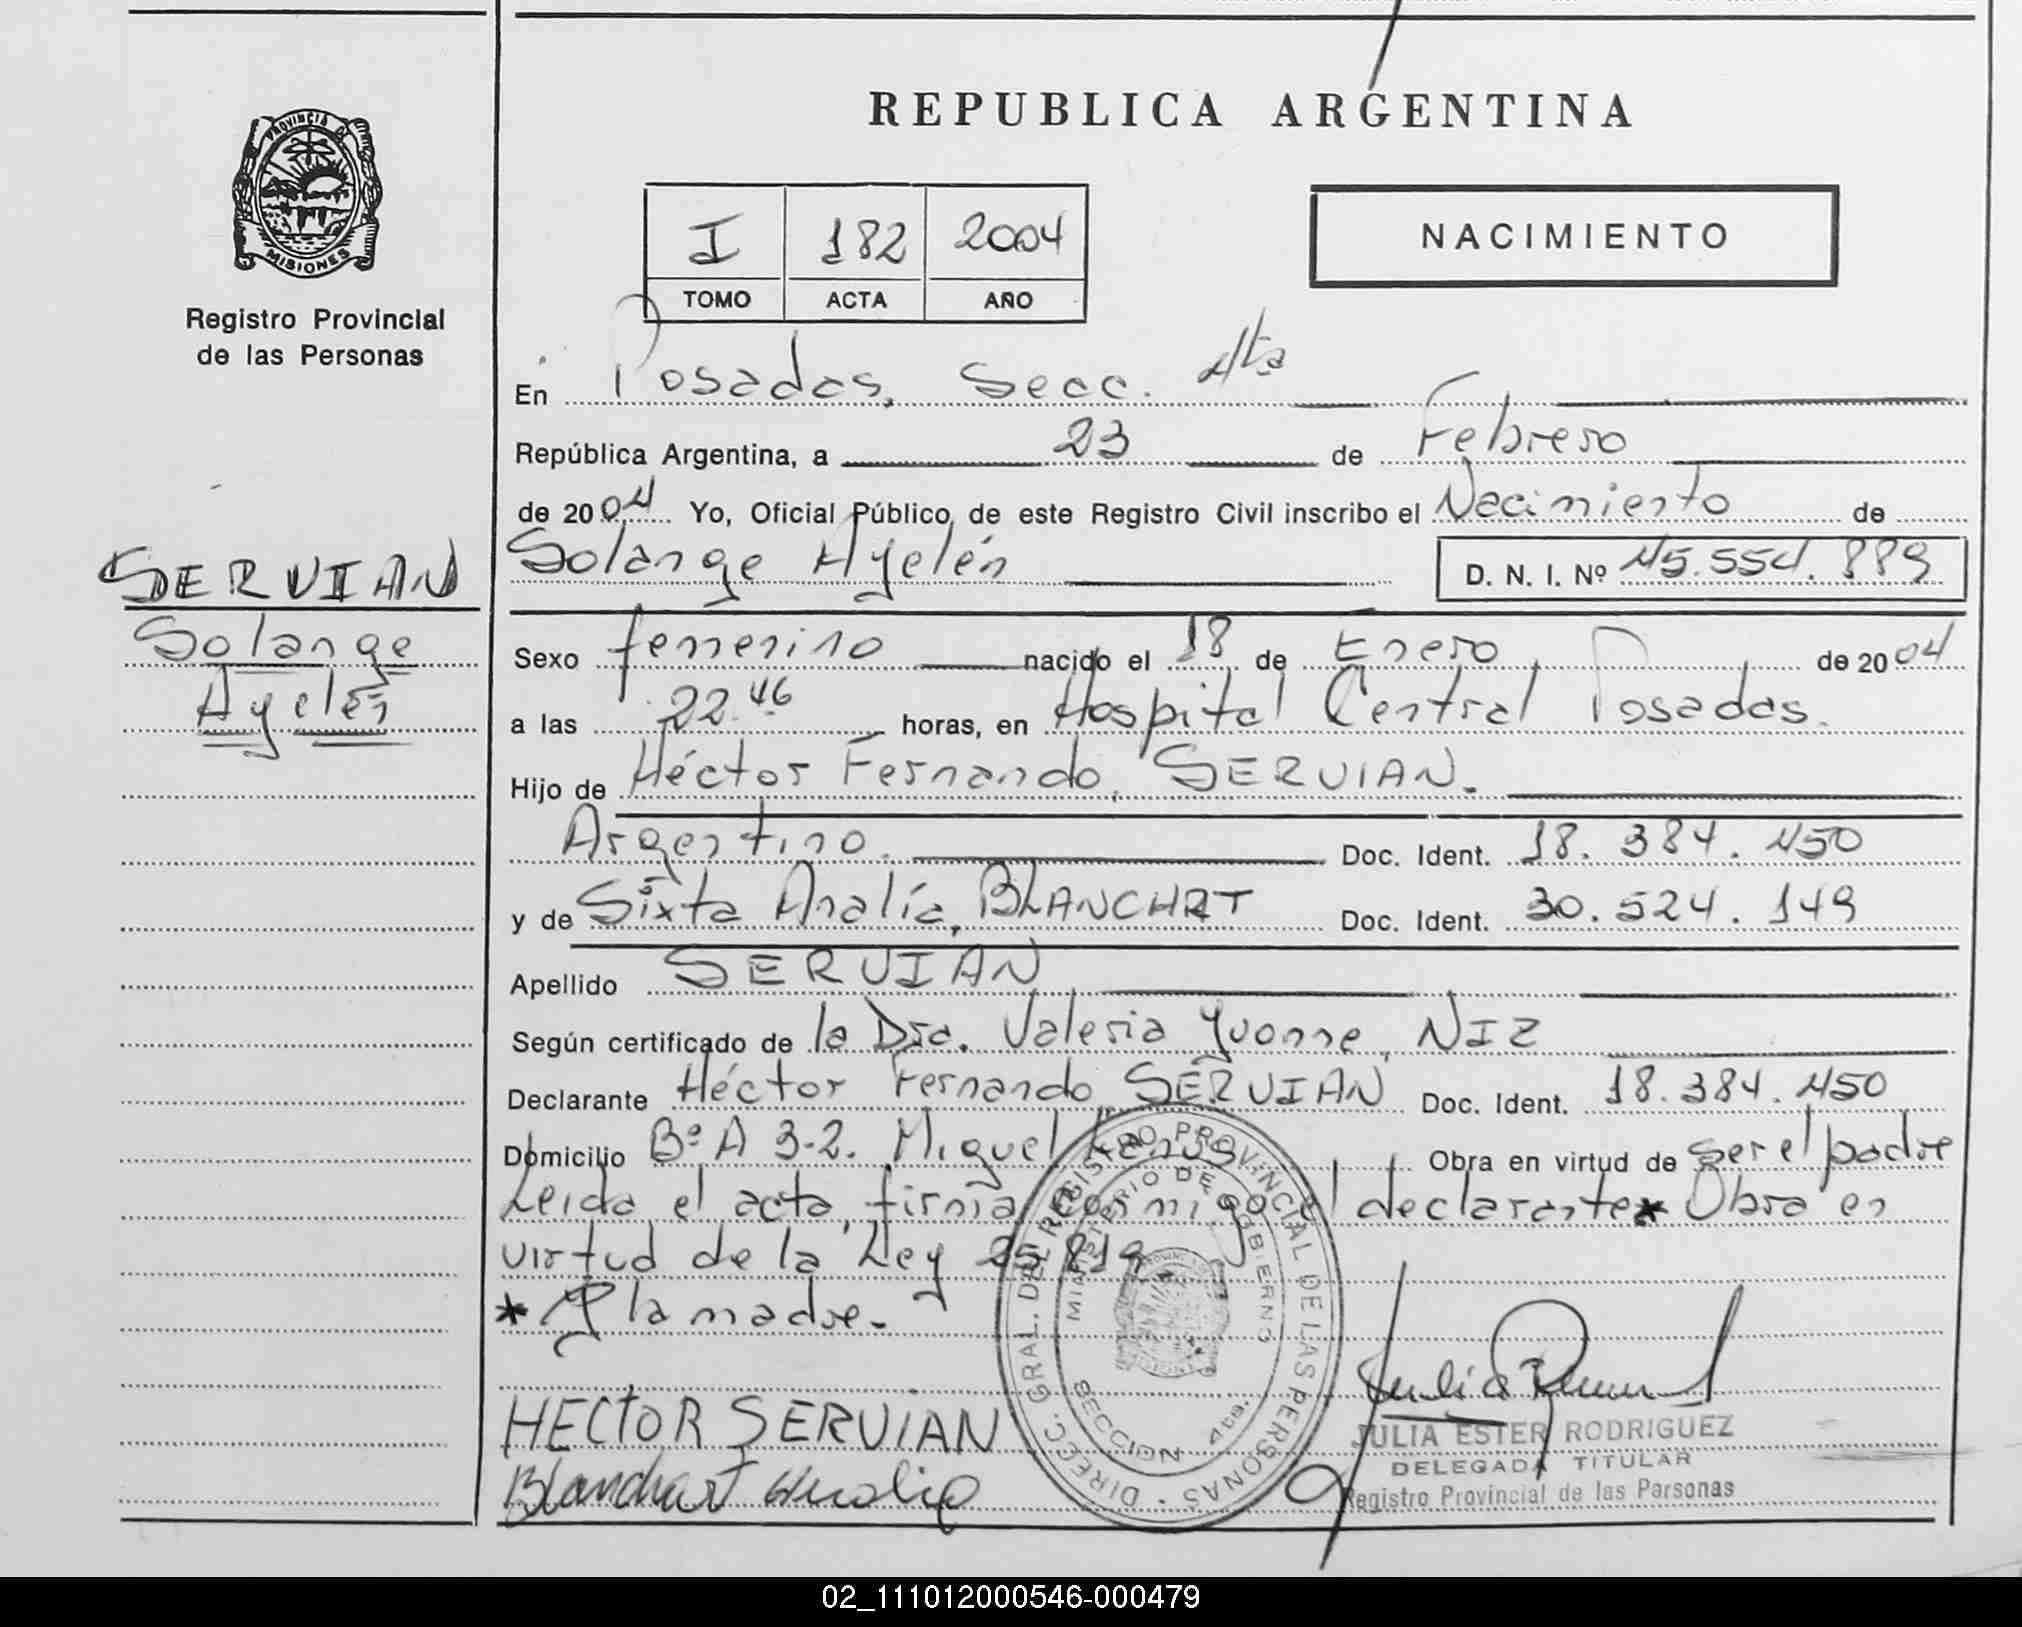 REPUBLICA ARGENTINA
PROVINCIA DE
MISIONES
Registro Provincial
de las Personas
I 182 2004
TOMO ACTA AÑO
NACIMIENTO
En Posadas, Secc. 4ta
República Argentina, a 23 de Febrero
de 2004 Yo, Oficial Público de este Registro Civil inscribo el Nacimiento de
Solange Ayelén D. N. I. Nº 45.554.889
SERVIAN
Solange
Ayelén
Sexo femenino nacido el 18 de Enero de 2004
a las 22.46 horas, en Hospital Central Posadas.
Hijo de Héctor Fernando, SERVIAN.
Argentino. Doc. Ident. 18.384.450
y de Sixta Analía, BLANCHRT Doc. Ident. 30.524.149
Apellido SERVIAN
Según certificado de la Dra. Valeria Yvonne, NIZ
Declarante Héctor Fernando SERVIAN Doc. Ident. 18.384.450
Domicilio Bº A 3-2. Miguel Obra en virtud de ser el padre
Leida el acta, firma conmigo el declarante* Obra en
virtud de la Ley 25.819
* y la madre.
HECTOR SERVIAN
Blanchart Analia
DIREC. GRAL. DEL REGISTRO PROVINCIAL DE LAS PERSONAS
MINISTERIO DE GOBIERNO
SECCION 4ta.
JULIA ESTER RODRIGUEZ
DELEGADA TITULAR
Registro Provincial de las Personas
02_111012000546-000479